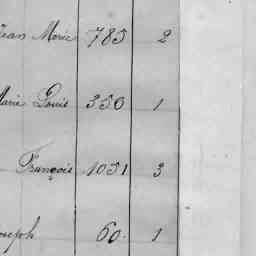 Jean Marie 785 2
Marie Louis 350 1
François 1051 3
Joseph 60. 1